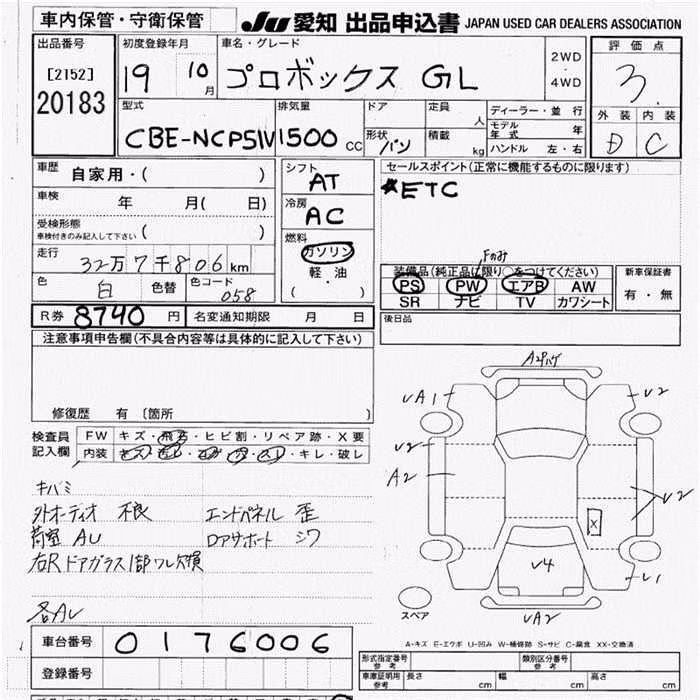 車内保管・守衛保管 JU 愛知 出品申込書 JAPAN USED CAR DEALERS ASSOCIATION
出品番号 初度登録年月 車名・グレード 評価点
[2152] 19 10月 プロボックス GL 2WD・4WD 3
20183
型式 排気量 ドア 定員 人 ディーラー・並行 外装 内装
CBE-NCP51V 1500 CC 形状 バン 積載 kg モデル年式 年 D C
ハンドル 左・右
車歴 自家用・( ) シフト AT セールスポイント(正常に機能するものに限ります)
車検 年 月( 日) 冷房 AC ETC
受検形態 ( )
車検付きのみ記入して下さい
走行 32万7千806km 燃料 ガソリン Fのみ
軽油 装備品(純正品に限り○をつけてください) 新車保証書
色 白 色替 色コード 058 ( ) PS PW エアB AW 有・無
SR ナビ TV カワシート
R券 8740円 名変通知期限 月 日 後日品
注意事項申告欄(不具合内容等は具体的に記入して下さい)
修復歴 有 [箇所 ]
検査員記入欄 FW キズ・飛石・ヒビ割・リペア跡・X要
内装 キズ・・・・・キレ・破レ
キバミ
外オーディオ 不良 エンドパネル 歪
荷室 AU Dアサポート シワ
右Rドアガラス1部ワレ欠損
各AU
A1 V2
V2
A2 V2
X
V4 V1
スペア VA2
A-キズ E-エクボ U-凹み W-補修跡 S-サビ C-腐食 XX-交換済
車台番号 0176006
登録番号
型式指定番号 参考 類別区分番号 参考
車庫証明用 参考 長さ cm 幅 cm 高さ cm